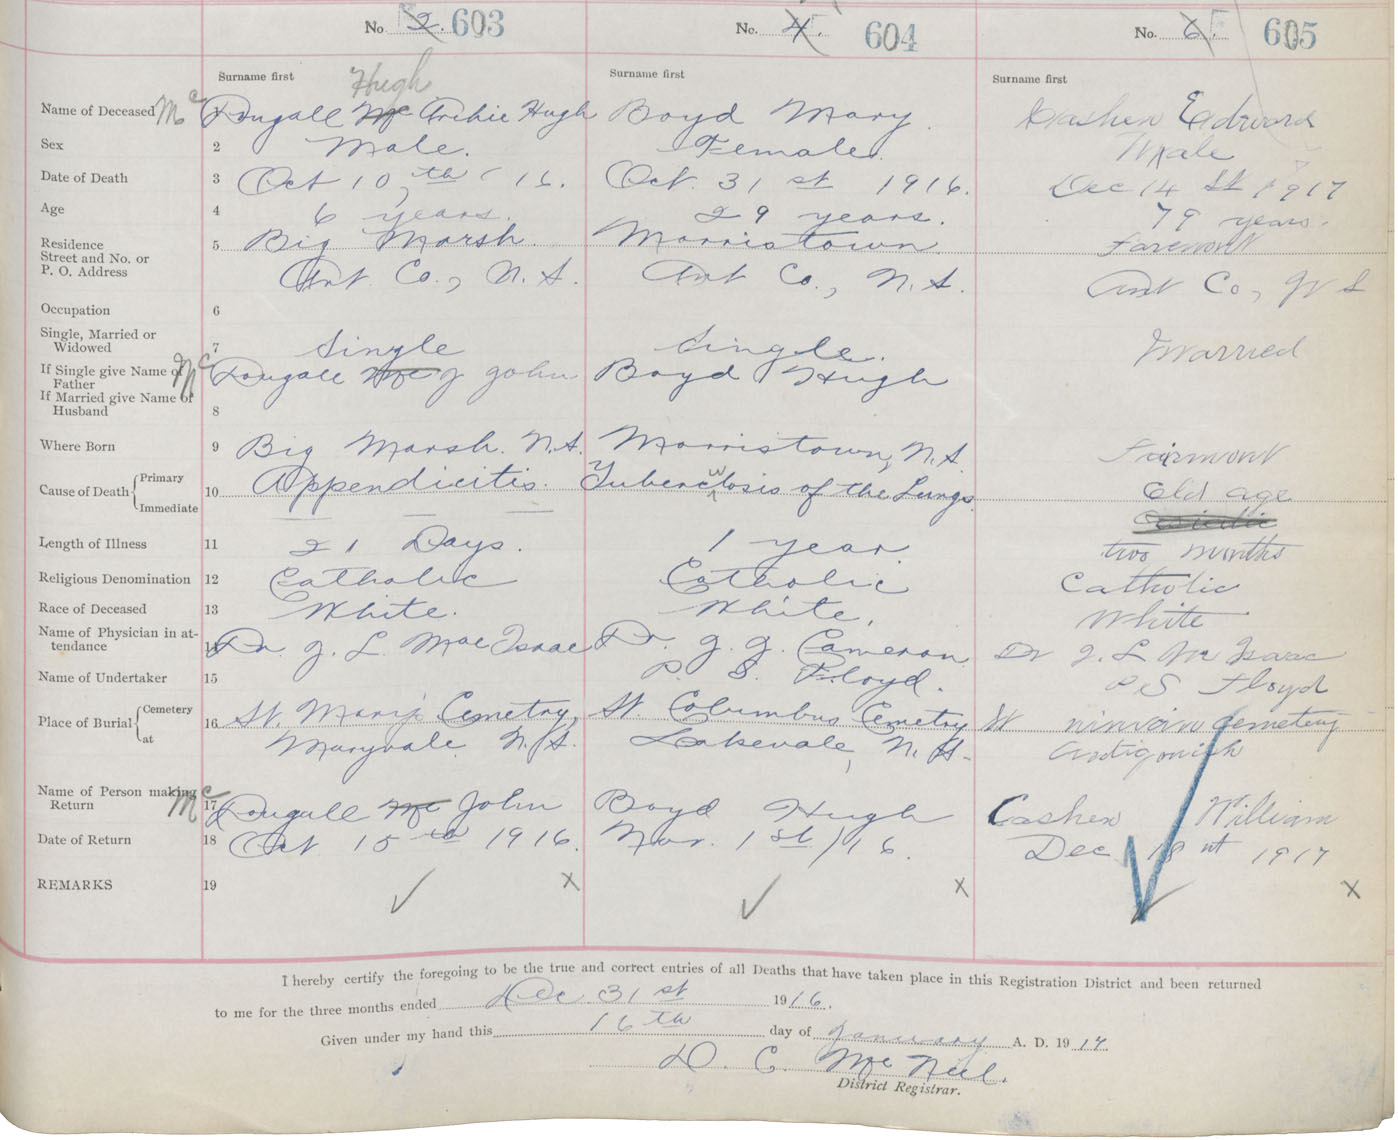 No 2. 603 No. 4. 604 No. 6. 605
Surname first Hugh Surname first Surname first
Name of Deceased Mc Dougall Mc Archie Hugh Boyd Mary. Cashen Edward
Sex 2 Male. Female. Male
Date of Death 3 Oct 10th, 16. Oct. 31st 1916. Dec 14 St 1917
Age 4 6 years. 29 years. 79 years.
Residence 5 Big Marsh. Morristown Faremont
Street and No. or
P. O. Address Ant Co., N. S. Ant Co., N. S. Ant Co, N S
Occupation 6
Single, Married or
Widowed 7 Single Single. Married
If Single give Name of Mc Dougall Mc J John Boyd Hugh
Father
If Married give Name of
Husband 8
Where Born 9 Big Marsh. N.S. Morristown, N.S. Fairmont
Cause of Death Primary 10 Appendicitis. Tuberculosis of the Lungs Old age
Immediate
Length of Illness 11 21 Days. 1 year two months
Religious Denomination 12 Catholic Catholic Catholic
Race of Deceased 13 White. White. White
Name of Physician in at-
tendance 14 Dr. J. L. MacIsaac Dr. J. J. Cameron Dr J. L Mc Isaac
Name of Undertaker 15 P. S. Floyd. P S Floyd
Place of Burial Cemetery 16 St. Mary's Cemetry, St. Columbus Cemetry St ninian Cemetery
at Maryvale N. S. Lakevale, N. S. Antigonish
Name of Person making
Return Mc 17 Dougall Mc John Boyd Hugh Cashen William
Date of Return 18 Oct 15th 1916. Nov. 1st/16. Dec 18 nt 1917
REMARKS 19 ✓ x ✓ x ✓ x
I hereby certify the foregoing to be the true and correct entries of all Deaths that have taken place in this Registration District and been returned
to me for the three months ended Dec 31st 1916.
Given under my hand this 16th day of January A. D. 1917
D. C. McNeil.
District Registrar.